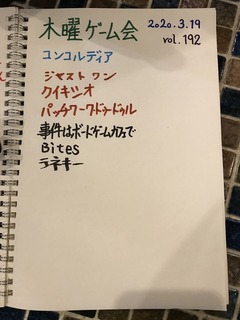 木曜ゲーム会 2020.3.19
vol.192
コンコルディア
ジャストワン
クイキシオ
パッチワークドゥードゥル
事件はボードゲームカフェで
Bites
ラネキー